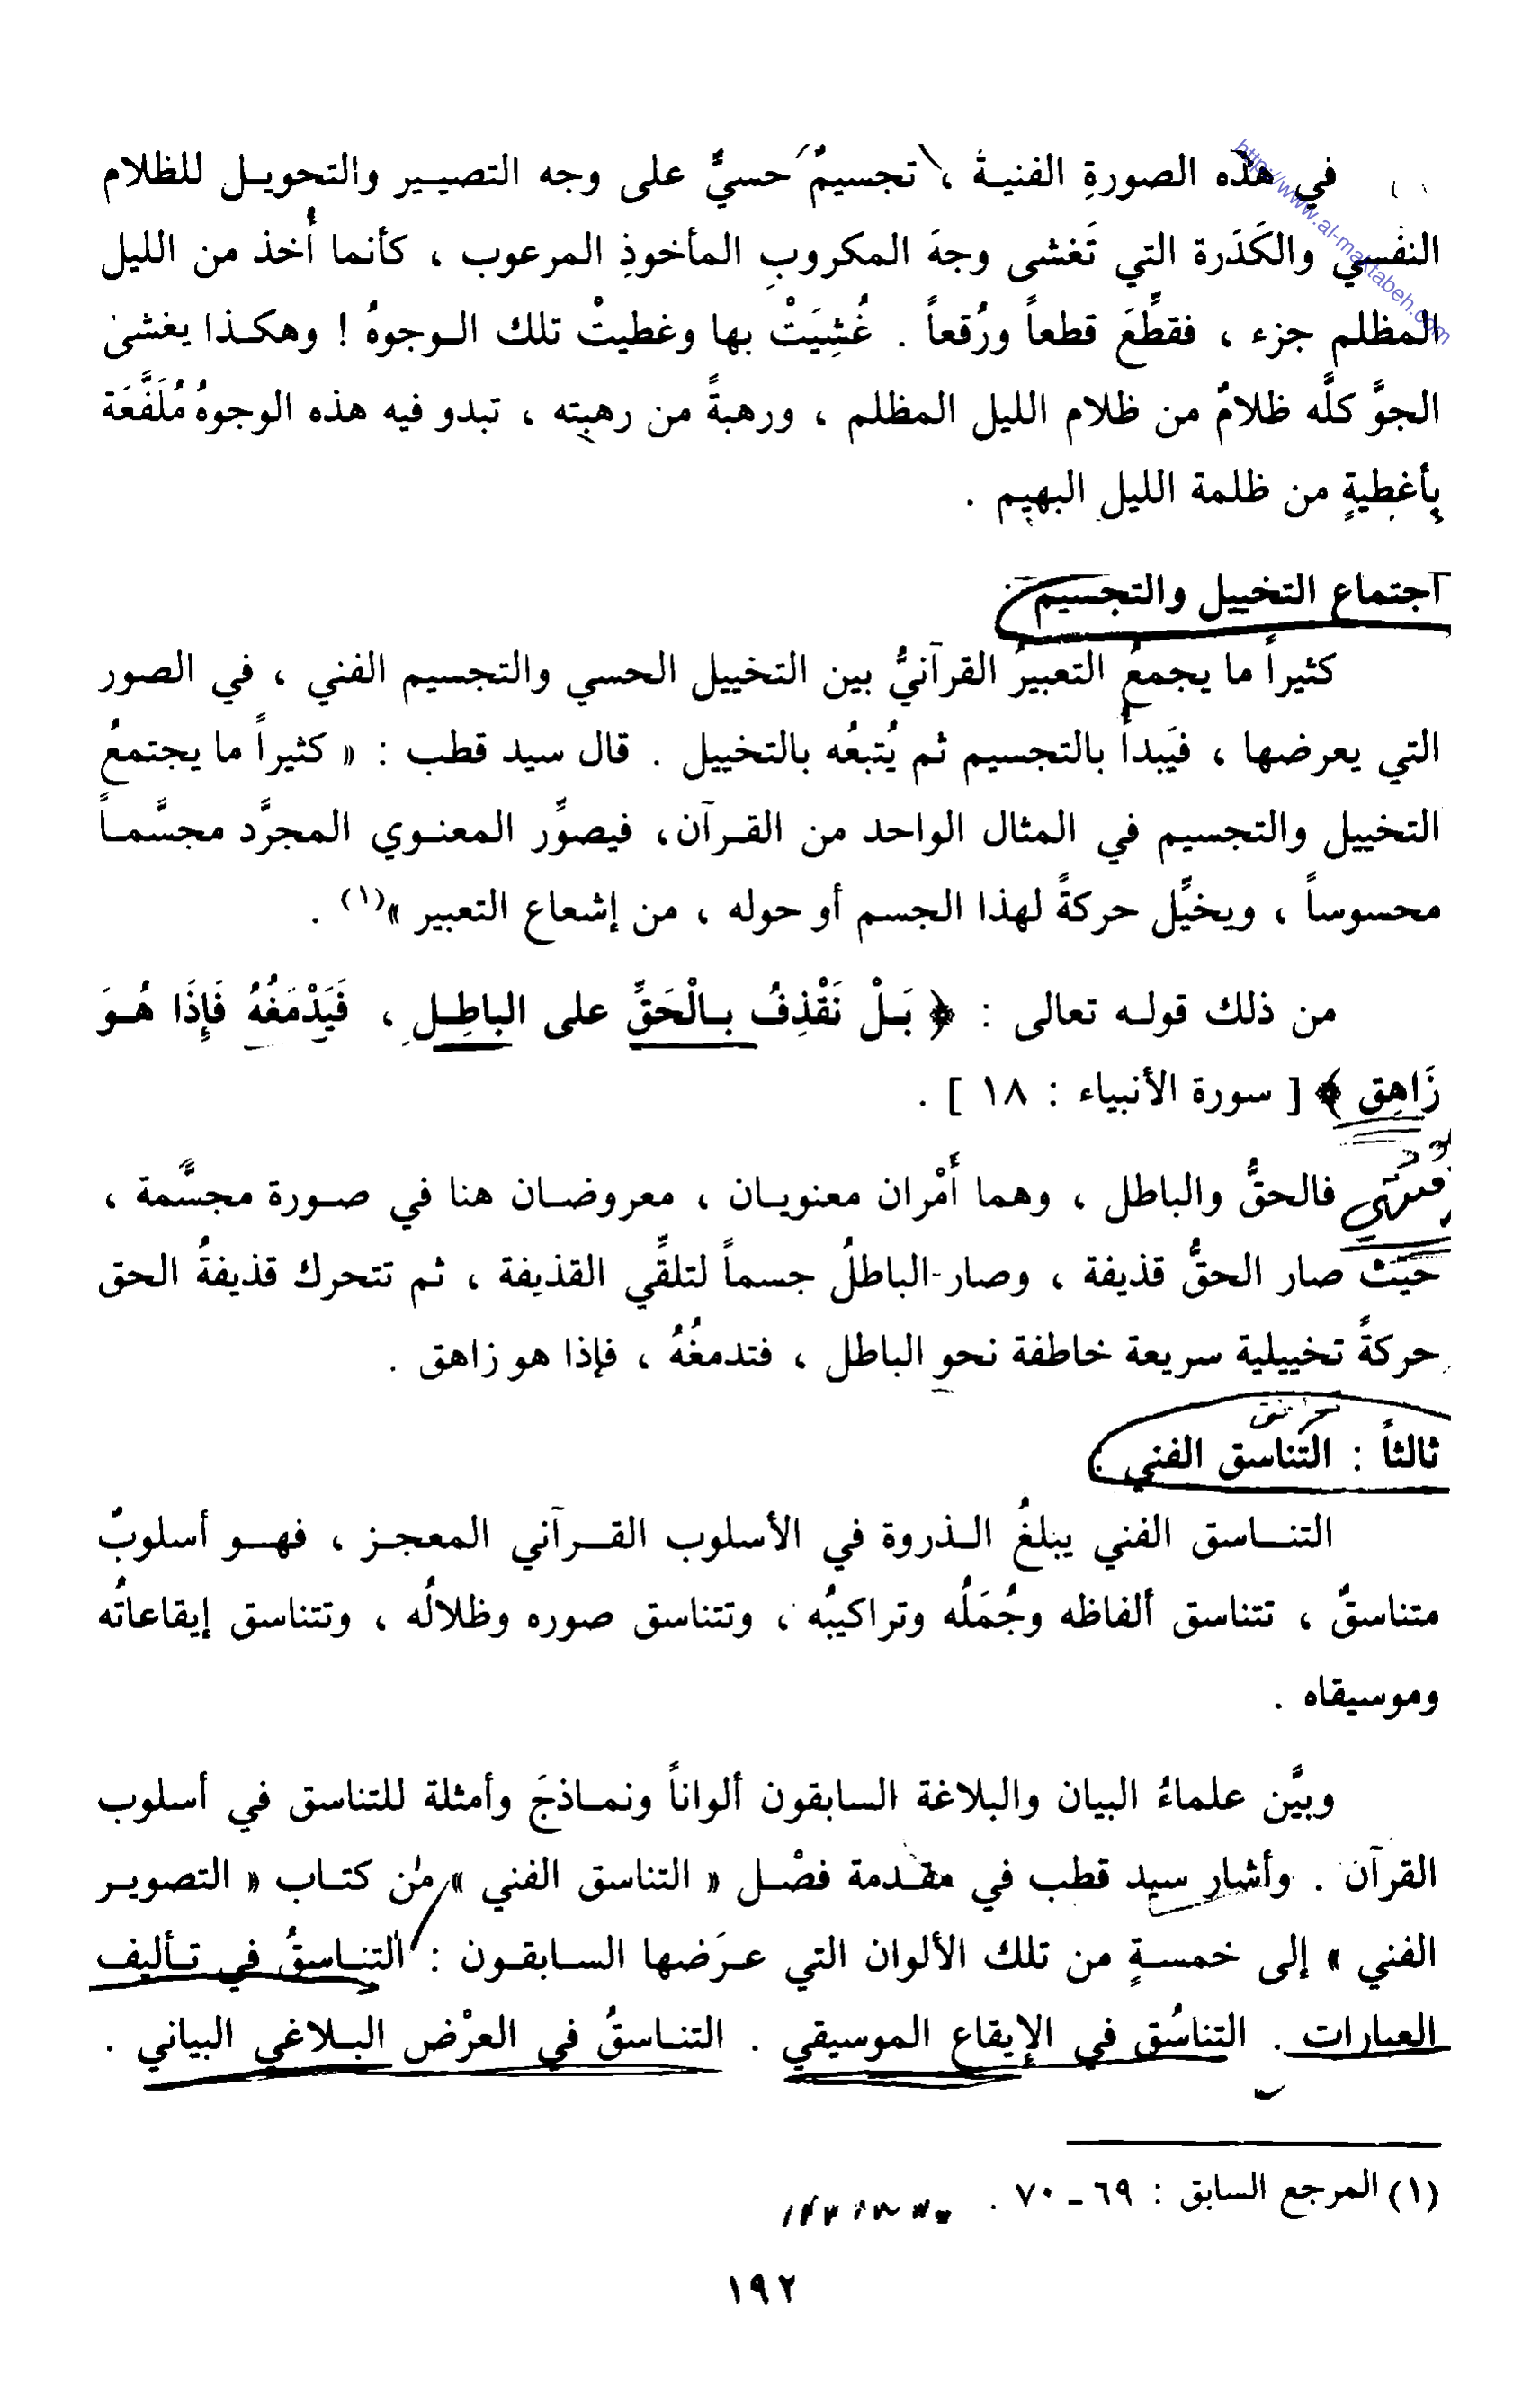 في هذه الصورةِ الفنيـة ، تجسيمٌ حسيٌّ على وجه التصييـر والتحويـل للظلام
النفسي والكَدَرة التي تَغشى وجهَ المكروبِ المأخوذِ المرعوب ، كأنما أُخذ من الليل
المظلم جزء ، فقطِّعَ قطعاً ورُقعاً . غُشِيَتْ بها وغطيتْ تلك الـوجوهُ ! وهكـذا يغشىٰ
الجوَّ كلَّه ظلامٌ من ظلام الليل المظلم ، ورهبةً من رهبته ، تبدو فيه هذه الوجوهُ مُلَفَّعَة
بأغطيةٍ من ظلمة الليل البهيم .
اجتماع التخييل والتجسيم
كثيراً ما يجمعُ التعبيرُ القرآنيُّ بين التخييل الحسي والتجسيم الفني ، في الصور
التي يعرضها ، فيَبدأ بالتجسيم ثم يُتبعُه بالتخييل . قال سيد قطب : « كثيراً ما يجتمعُ
التخييل والتجسيم في المثال الواحد من القـرآن، فيصوِّر المعنـوي المجرَّد مجسَّمـاً
محسوساً ، ويخيِّل حركةً لهذا الجسم أو حوله ، من إشعاع التعبير »(١) .
من ذلك قولـه تعالى : ﴿ بَـلْ نَقْذِفُ بـالْحَقِّ على الباطِـلِ ، فَيَدْمَغُهُ فَإِذَا هُـوَ
زَاهِق ﴾ [ سورة الأنبياء : ١٨ ] .
فالحقُّ والباطل ، وهما أَمْران معنويـان ، معروضـان هنا في صـورة مجسَّمة ،
حَيْث صار الحقُّ قذيفة ، وصار الباطلُ جسماً لتلقِّي القذيفة ، ثم تتحرك قذيفةُ الحق
حركةً تخييلية سريعة خاطفة نحو الباطل ، فتدمغُهُ ، فإذا هو زاهق .
ثالثاً : التناسق الفني :
التنـــاسق الفني يبلغُ الـذروة في الأسلوب القـــرآني المعجـز ، فهـــو أسلوبٌ
متناسقٌ ، تتناسق ألفاظه وجُمَلُه وتراكيبُه ، وتتناسق صوره وظلالُه ، وتتناسق إيقاعاتُه
وموسيقاه .
وبيَّن علماءُ البيان والبلاغة السابقون ألواناً ونمـاذجَ وأمثلة للتناسق في أسلوب
القرآن . وأشار سيد قطب في مقـدمة فصْـل « التناسق الفني » من كتـاب « التصويـر
الفني » إلى خمسـةٍ من تلك الألوان التي عـرَضها السـابقـون : التنـاسقُ في تـأليف
العبارات . التناسُق في الإيقاع الموسيقي . التنـاسقُ في العرْض البـلاغي البياني .
(١) المرجع السابق : ٦٩ ـ ٧٠ .
١٩٢
http://www.al-maktabeh.com